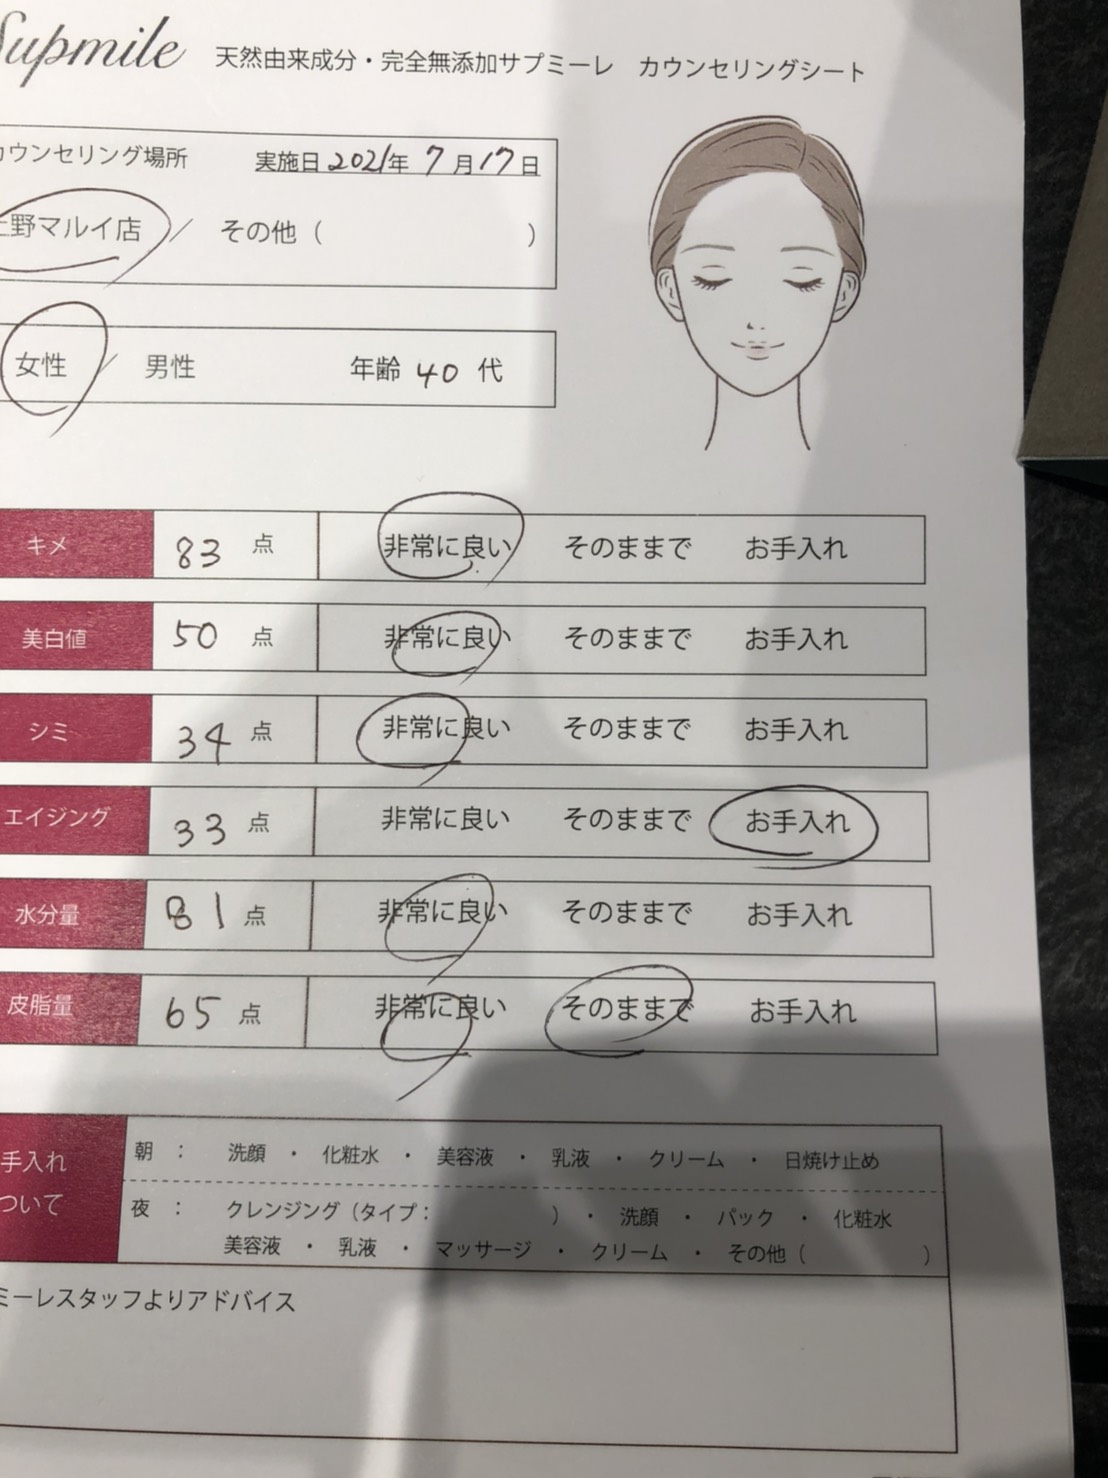 Supmile 天然由来成分・完全無添加サプミーレ カウンセリングシート
カウンセリング場所 実施日 2021年 7月17日
上野マルイ店 / その他 ( )
女性 / 男性 年齢 40 代
キメ 83 点 非常に良い そのままで お手入れ
美白値 50 点 非常に良い そのままで お手入れ
シミ 34 点 非常に良い そのままで お手入れ
エイジング 33 点 非常に良い そのままで お手入れ
水分量 81 点 非常に良い そのままで お手入れ
皮脂量 65 点 非常に良い そのままで お手入れ
手入れ
ついて
朝 : 洗顔 ・ 化粧水 ・ 美容液 ・ 乳液 ・ クリーム ・ 日焼け止め
夜 : クレンジング (タイプ: ) ・ 洗顔 ・ パック ・ 化粧水
美容液 ・ 乳液 ・ マッサージ ・ クリーム ・ その他 ( )
ミーレスタッフよりアドバイス